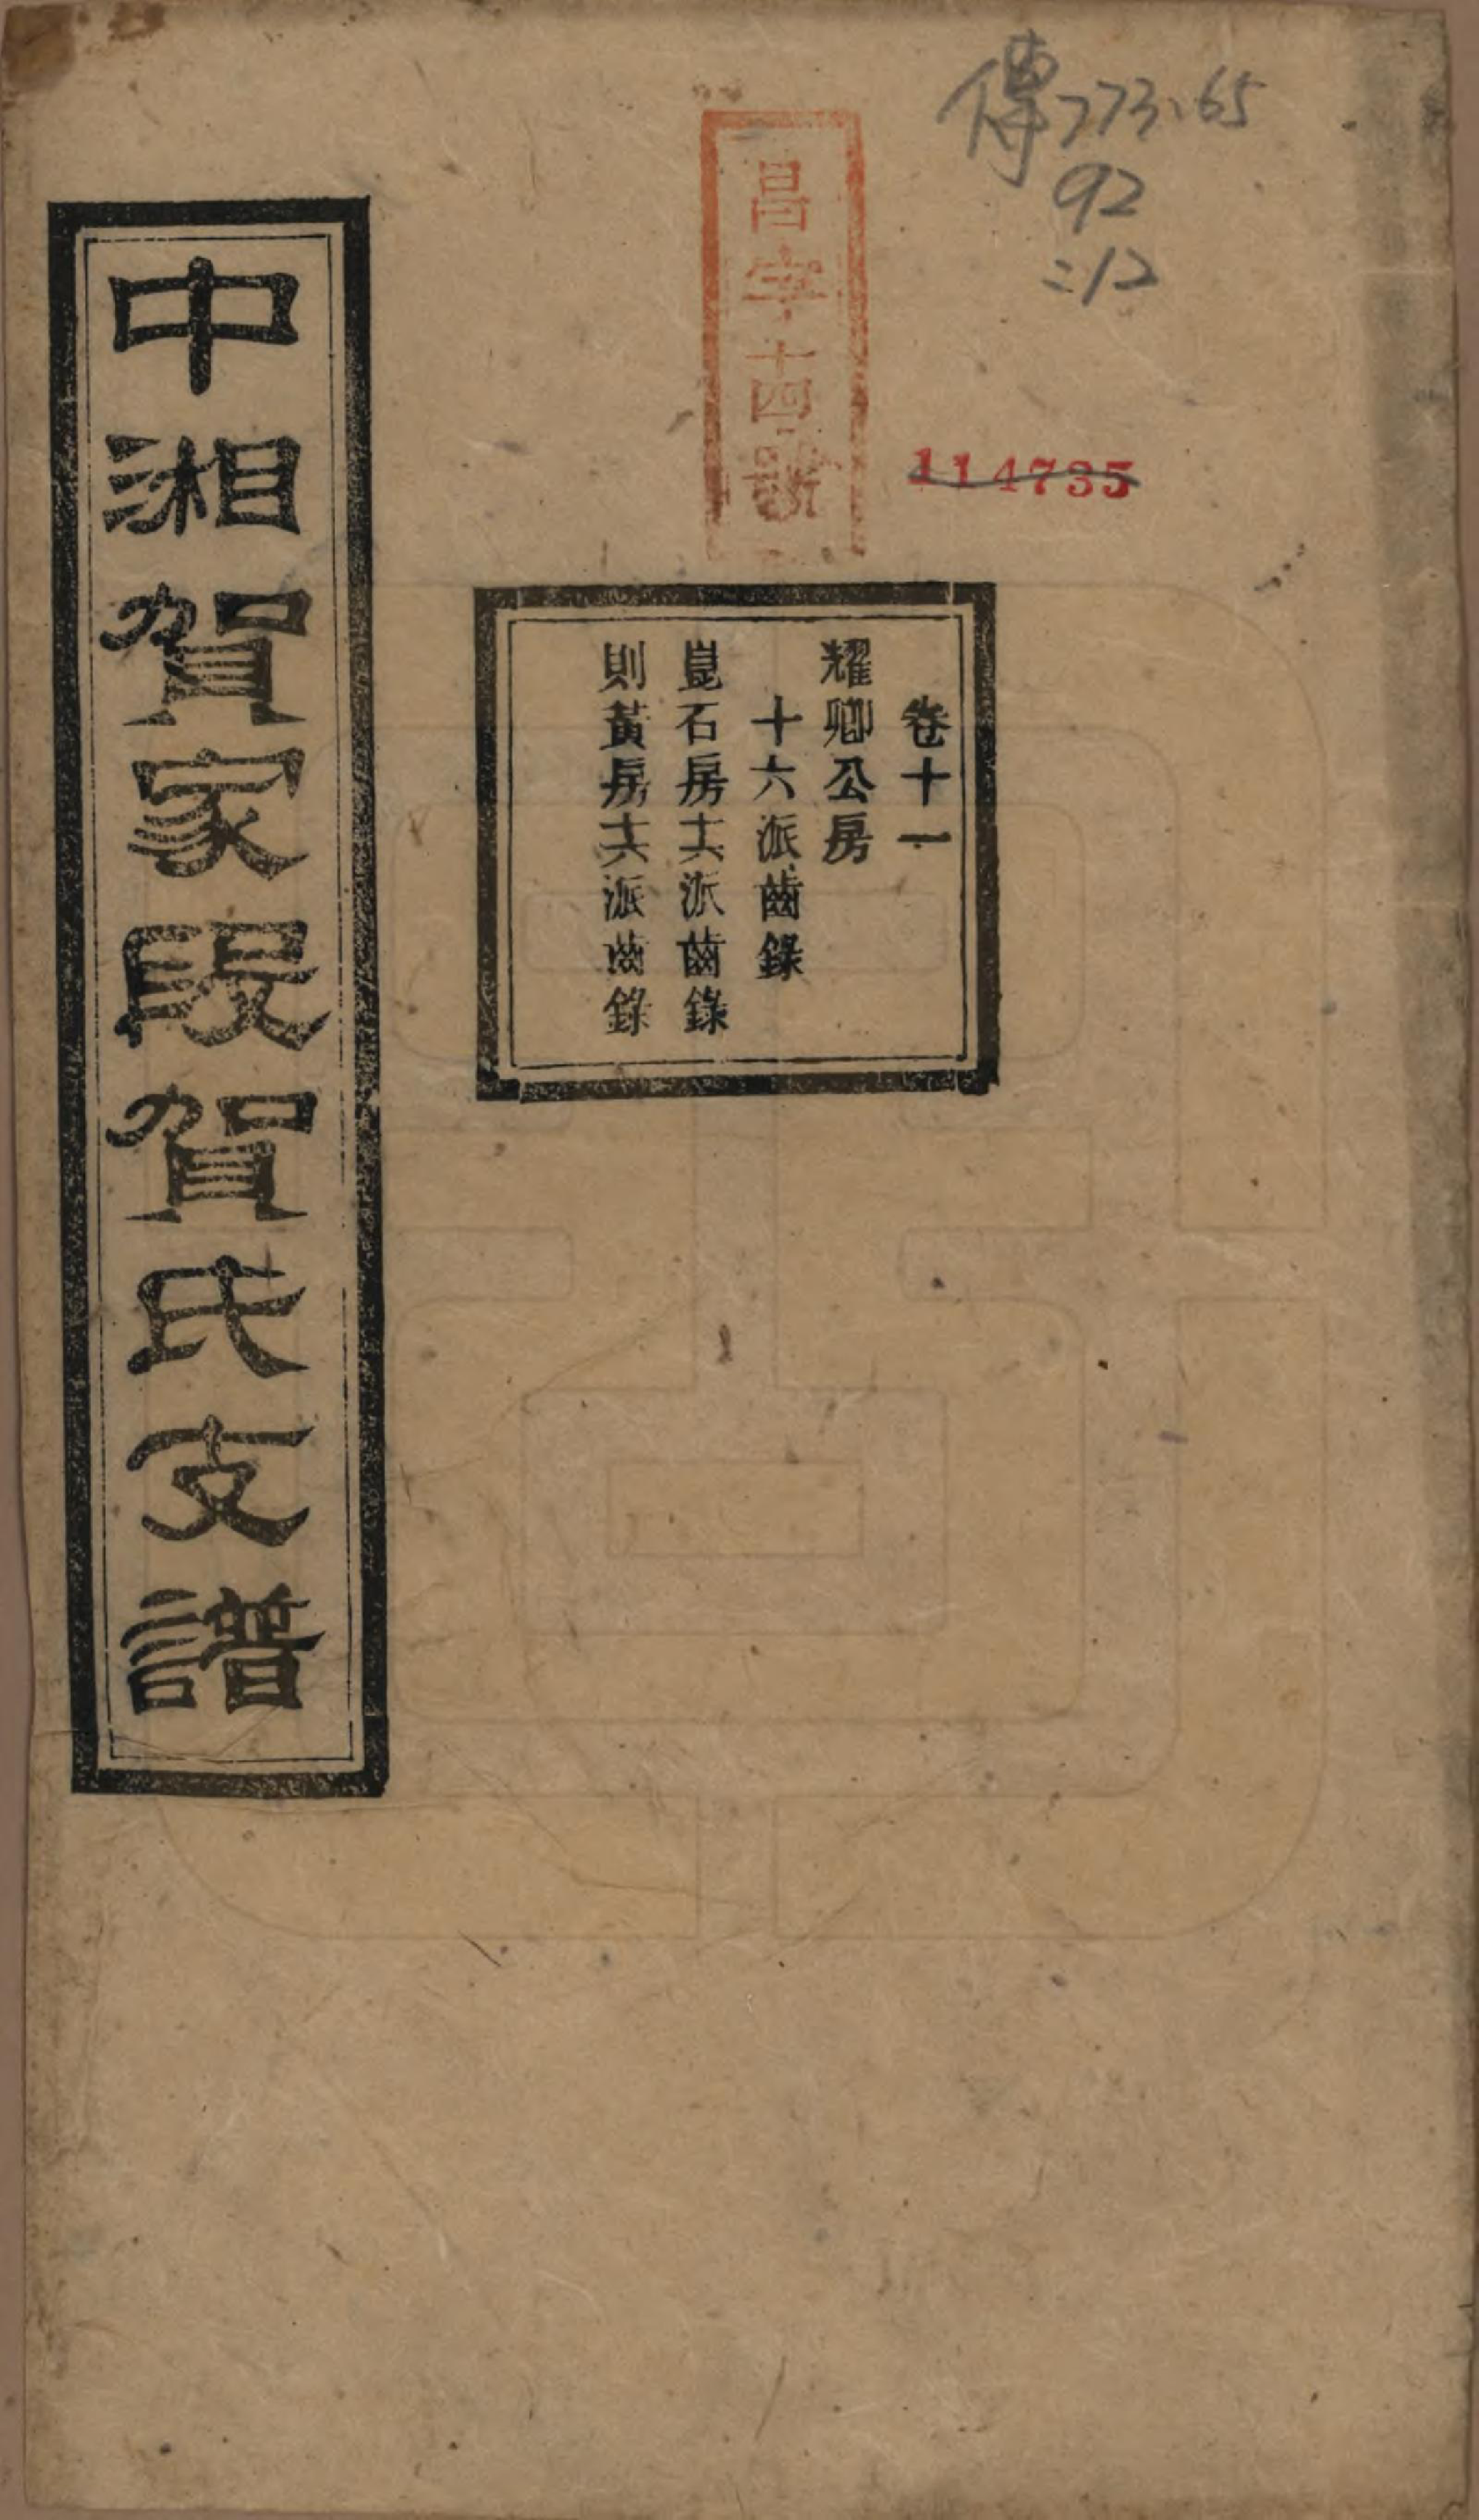 傳773.65
92
:12
昌字十四號
114735
卷十一
耀卿公房
十六派齒錄
崑石房十六派齒錄
則黃房十六派齒錄
中湘賀家段賀氏支譜